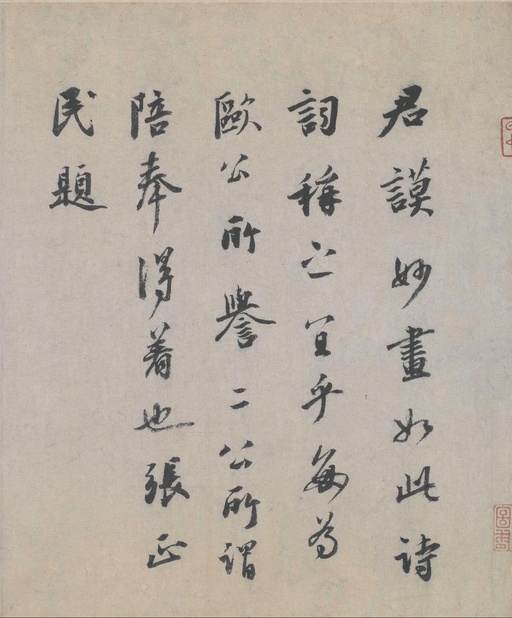 君謨妙畫如此詩
詞稱之宜乎每為
歐公所譽二公所謂
陪奉得着也張正
民題